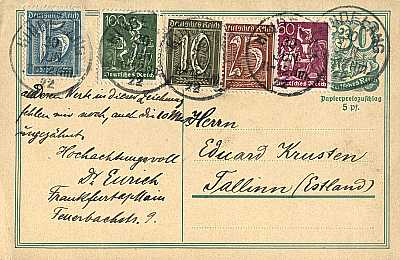 Deutsches Reich
5
100
Deutsches Reich
Deutsches Reich
10
Deutsches Reich
25
60
Deutsches Reich
30
22
22
Papierpreiszuschlag
5 Pf.
andere Werte in dieser Zeichnung
fehlen mir noch, auch die
ungezähnt.
Hochachtungsvoll
Dr Eurich
Frankfurt a/Main
Feuerbachstr. 9.
Herrn
Eduard Krusten
Tallinn (Estland)